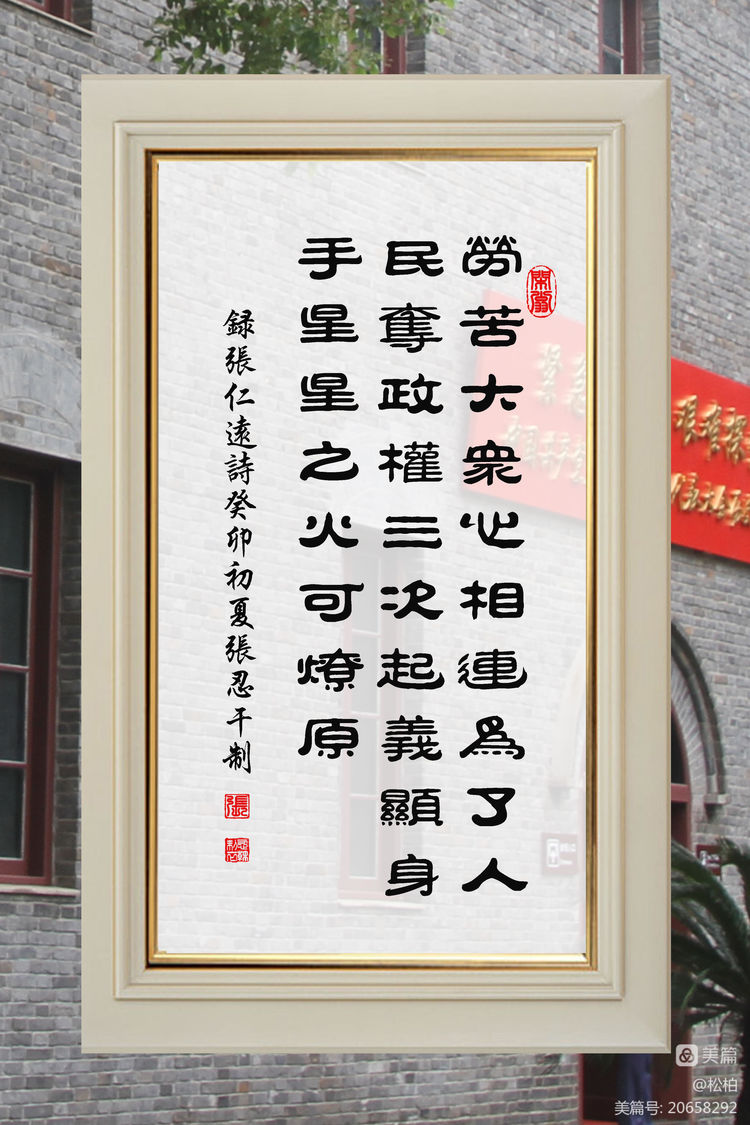 勞苦大衆心相連為了人
民奪政權三次起義顯身
手星星之火可燎原
録張仁遠詩癸卯初夏張忍干制
張
美篇
@松柏
美篇号: 20658292